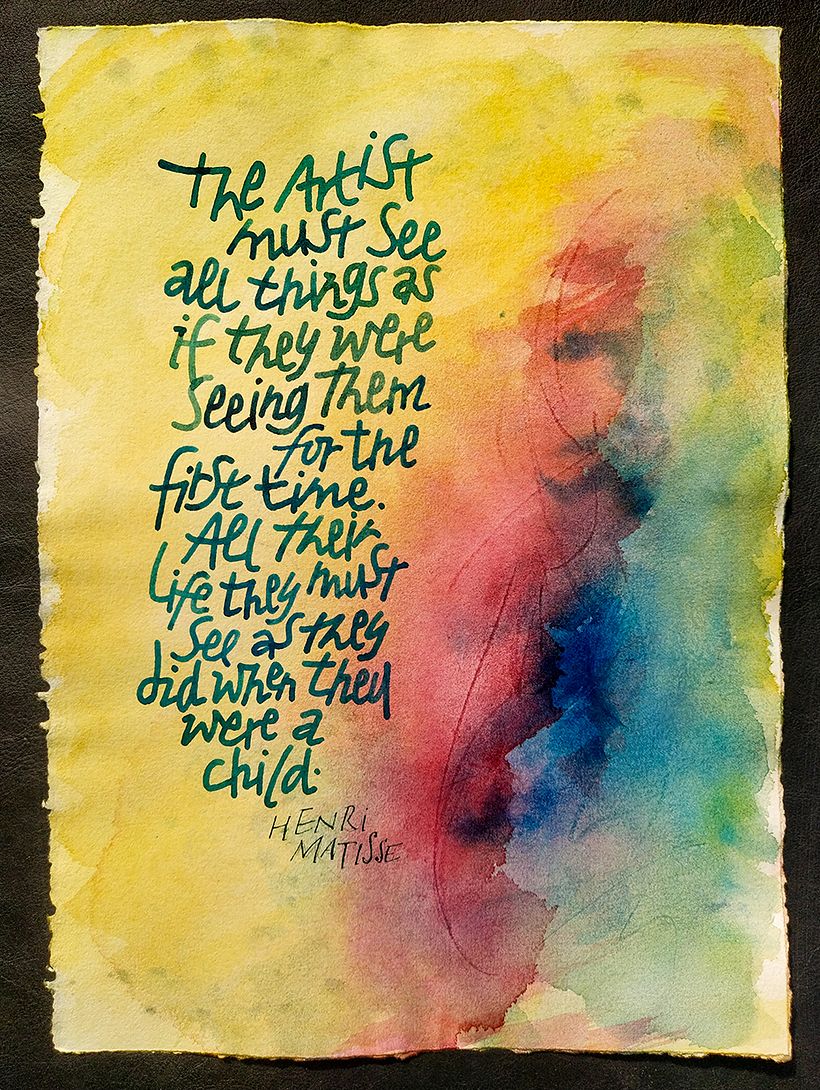 The Artist
must See
all things as
if they were
Seeing Them
for the
first time.
All their
life they must
see as they
did when they
were a
child.
HENRI
MATISSE